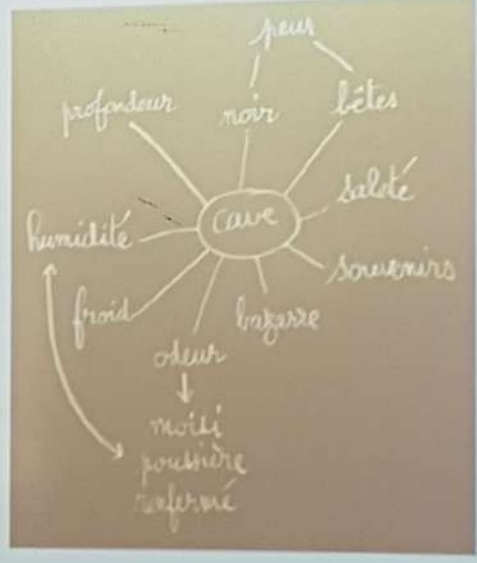 peur
profondeur
noir
bêtes
saleté
cave
humidité
souvenirs
froid
bazarre
odeur
moisi
poussière
renfermé